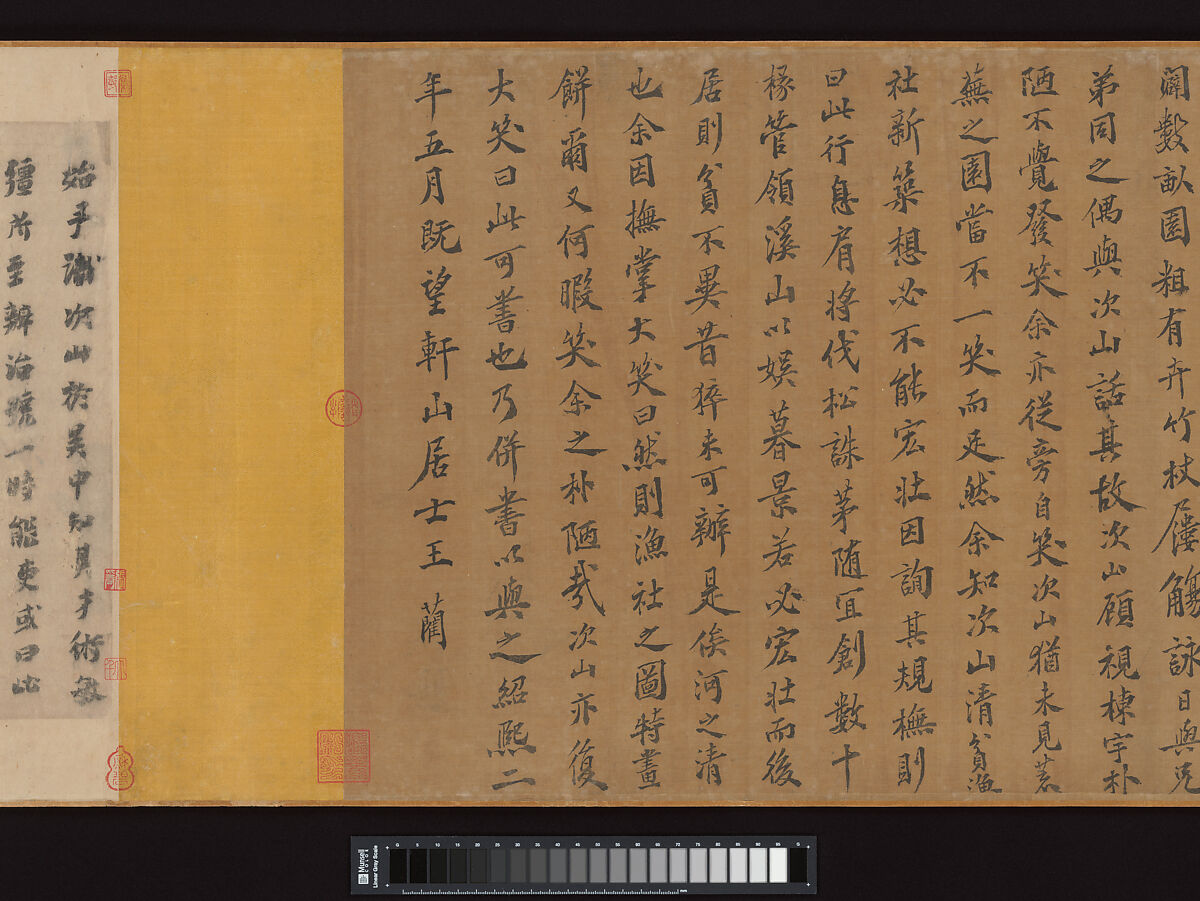 闢數畝園粗有卉竹杖屨觴詠日與兄
弟同之偶與次山話其故次山顧視棟宇朴
陋不覺發笑余亦從旁自笑次山猶未見荒
蕪之園當不一笑而足然余知次山清貧漁
社新築想必不能宏壯因詢其規橅則
曰此行息肩將伐松誅茅随宜創數十
椽管領溪山以娛暮景若必宏壯而後
居則貧不異昔猝未可辦是俟河之清
也余因撫掌大笑曰然則漁社之圖特畫
餅爾又何暇笑余之朴陋哉次山亦復
大笑曰此可書也乃併書以與之紹熙二
年五月既望軒山居士王藺
始予識次山於吴中知其才術敏
彊所至辦治號一時能吏或曰此
Munsell COLOR
Linear Gray Scale
G 5 10 15 20 25 30 35 40 45 50 55 60 65 70 75 80 85 90 95 G
mm